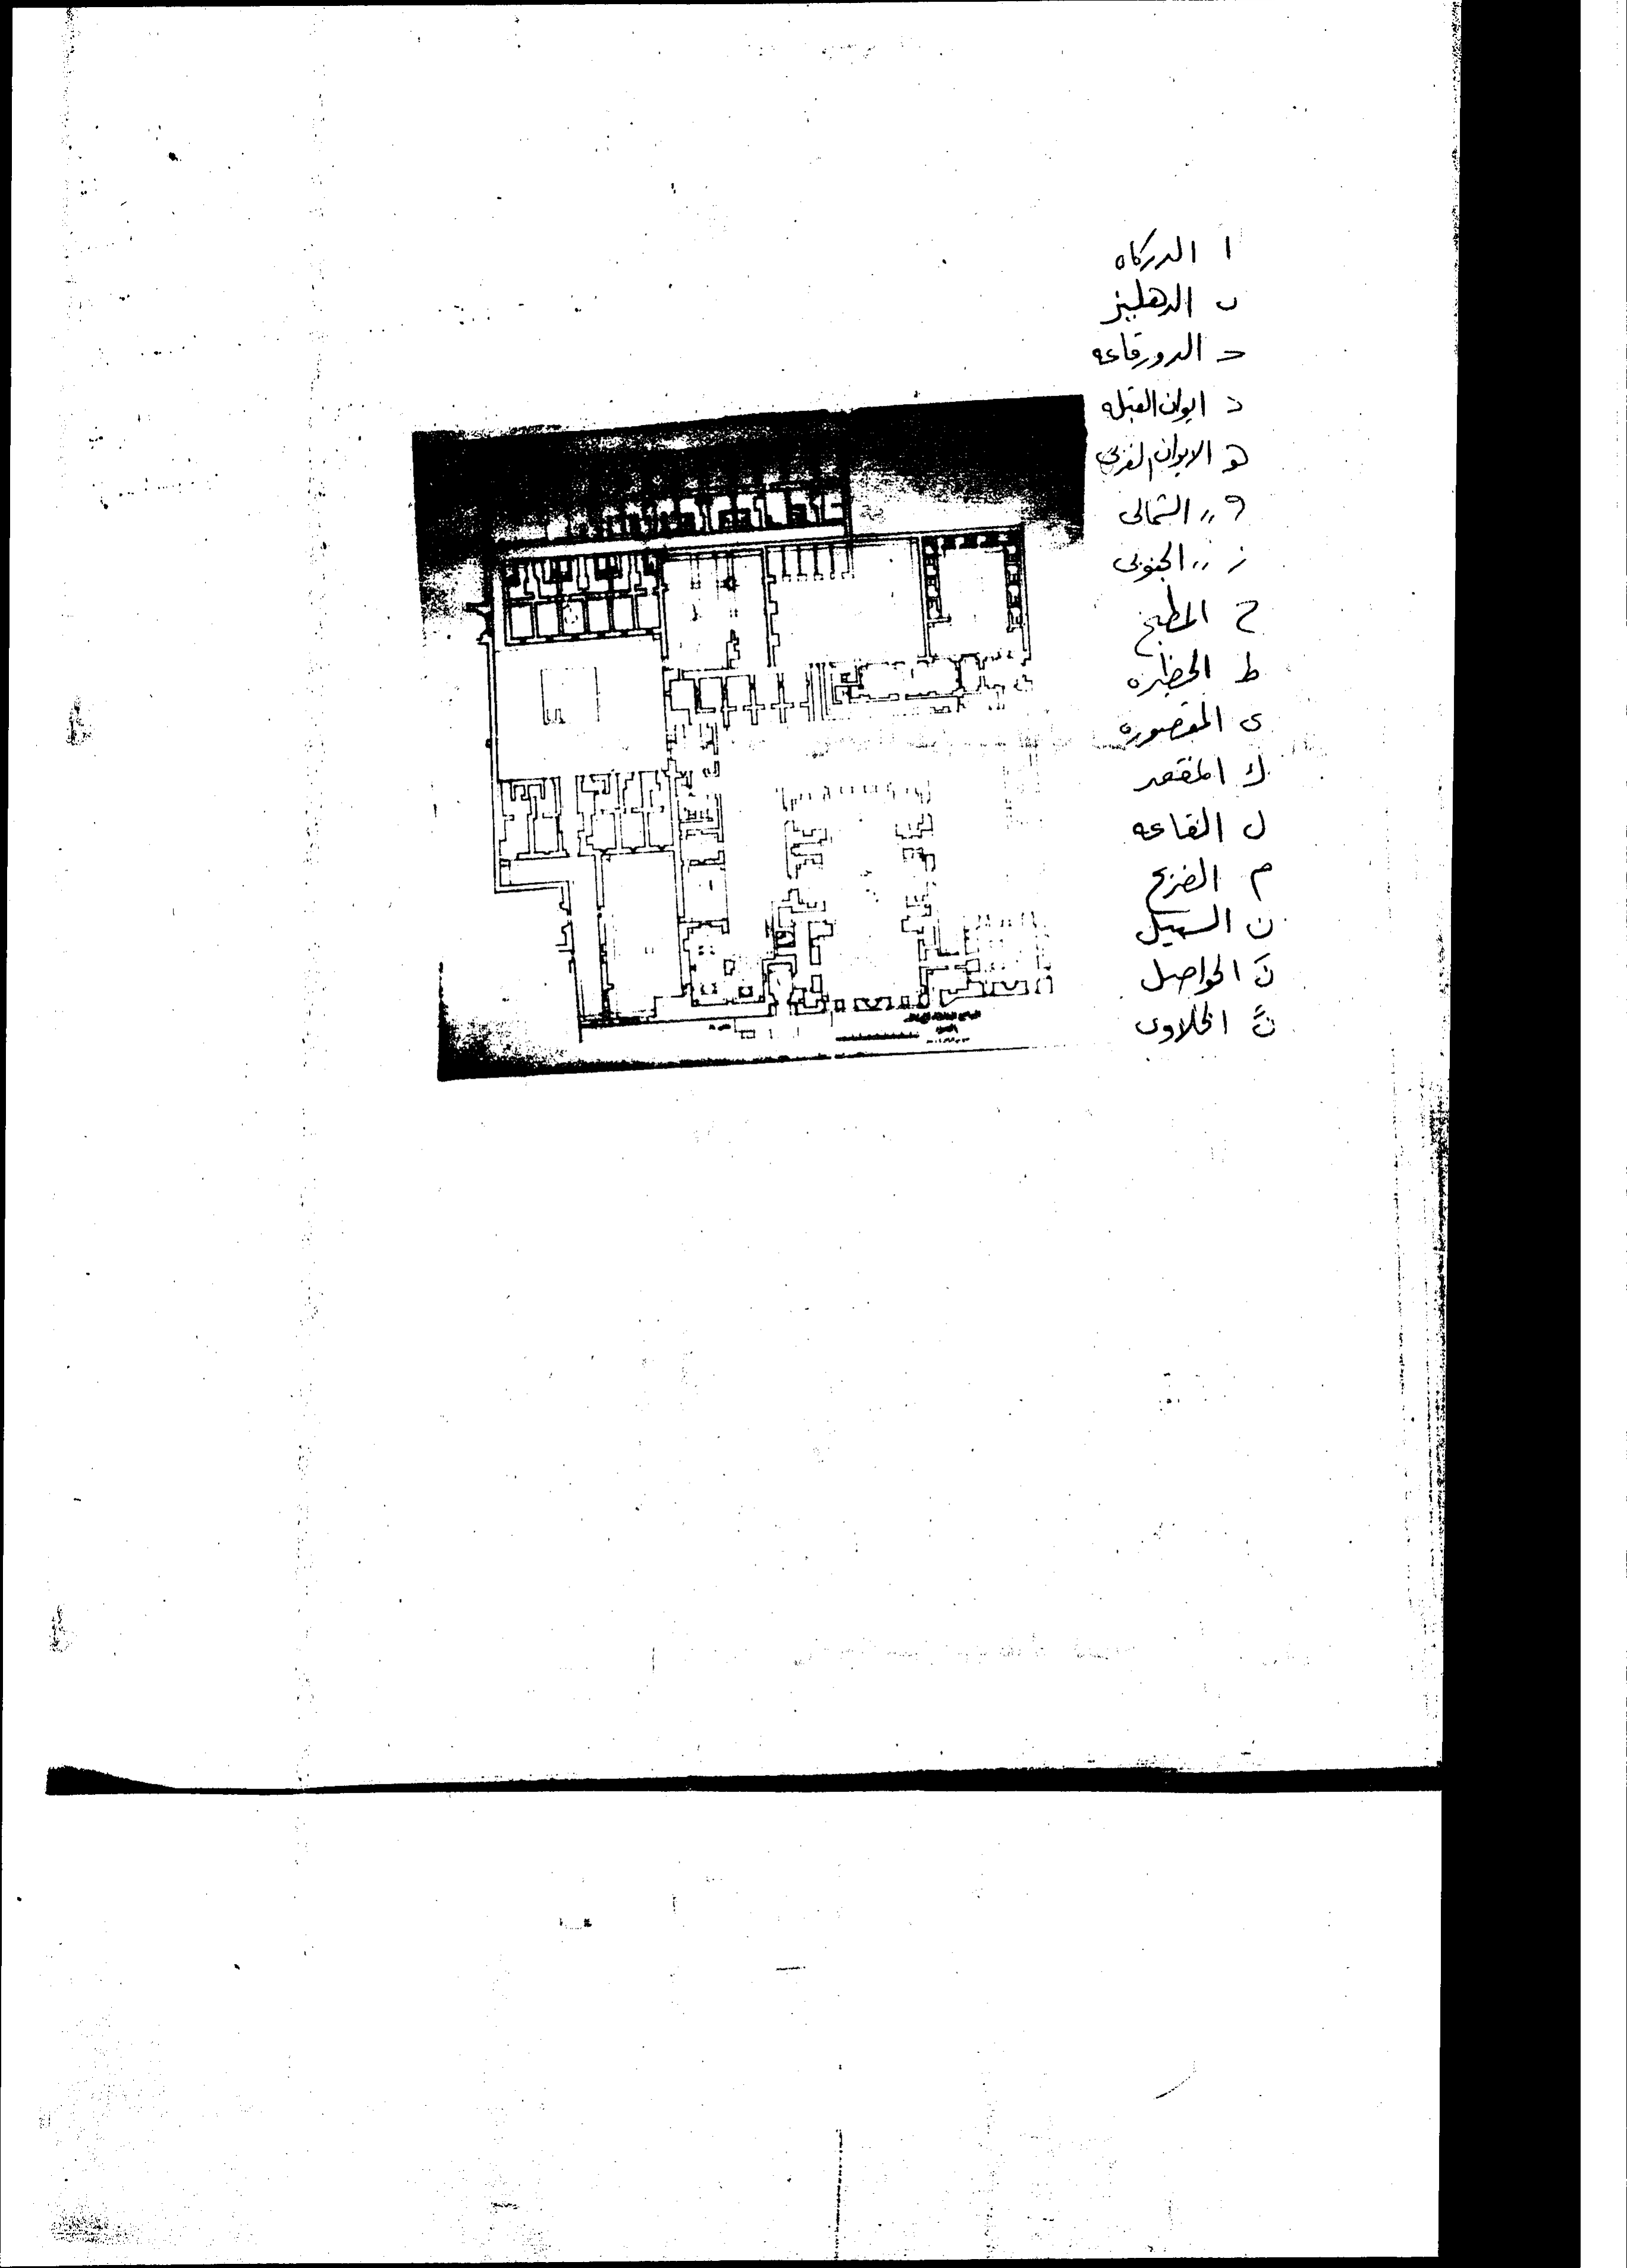 ا الدركاه
ب الدهليز
ح الدورقاعه
د ايوان القبله
هو الايوان الغربى
و ,, الشمالى
ز ,, الجنوبى
ح المطبخ
ط الحظيره
ى المقصوره
ك المقعد
ل القاعه
م الضريح
ن السبيل
نَ الحواصل
نً الخلاوى